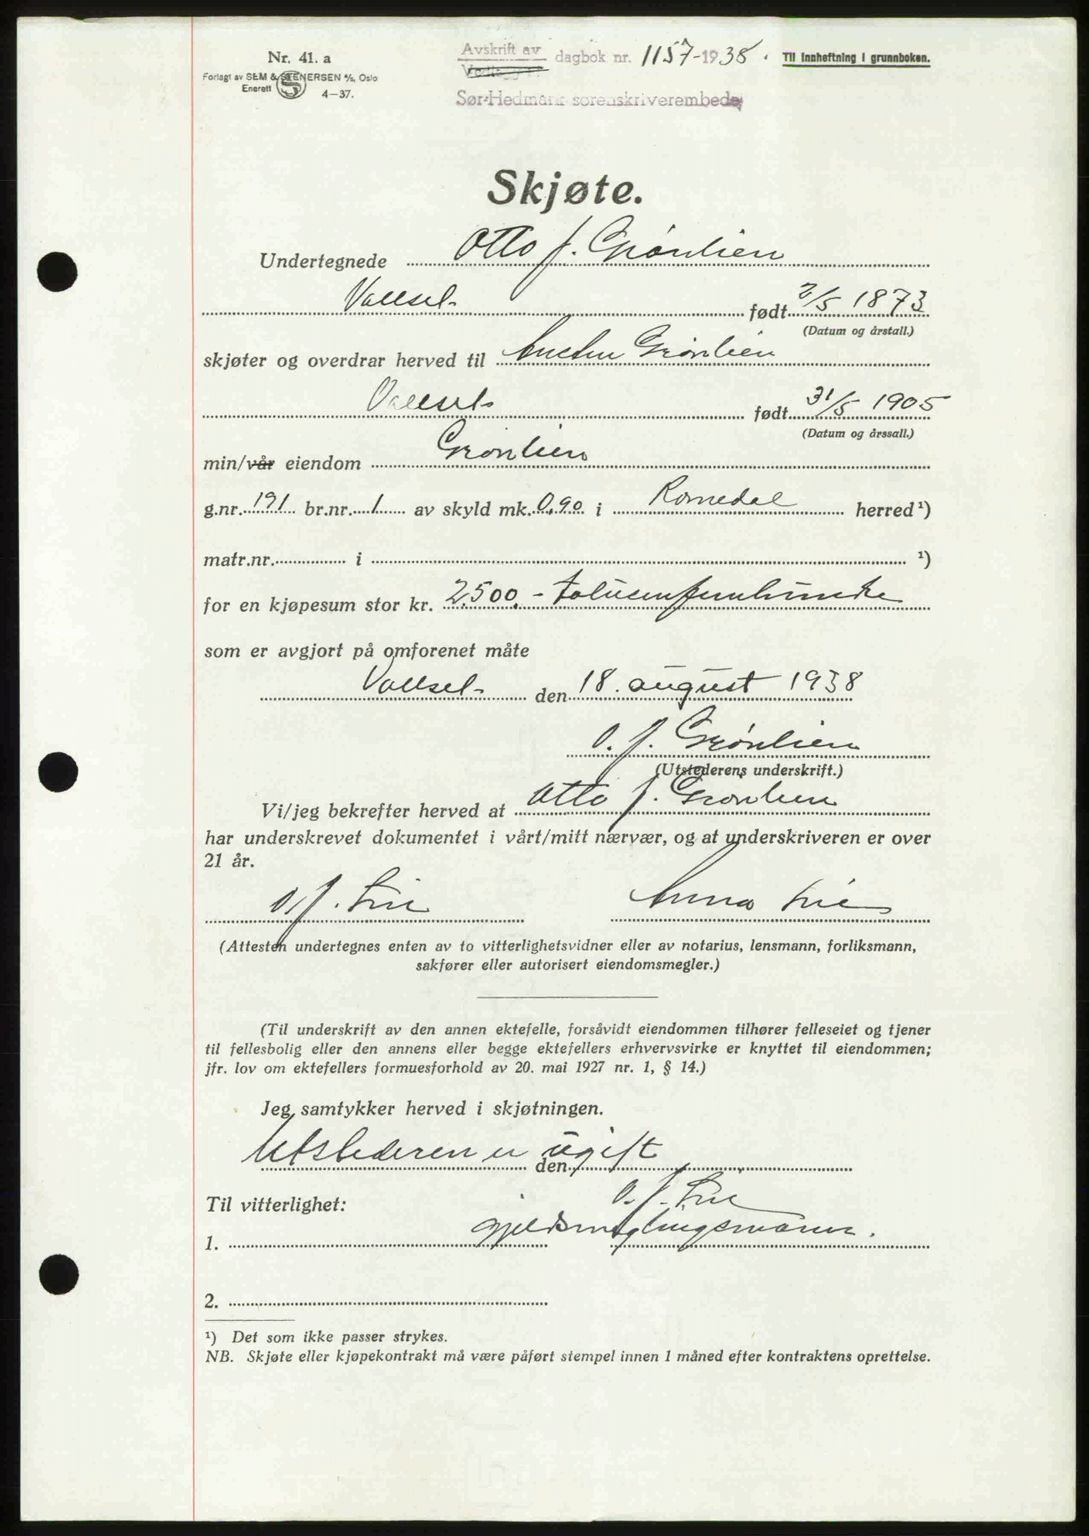 Nr. 41. a
Forlagt av SEM & STENERSEN A/S, Oslo
Enerett
4—37.
Avskrift av
dagbok nr. 1157-1938.
Til innheftning i grunnboken.
Sør-Hedmark sorenskriverembede
Skjøte.
Undertegnede Otto J. Grønlien
Vallset født 2/5 1873
(Datum og årstall.)
skjøter og overdrar herved til Grønlien
Vallset født 31/5 1905
(Datum og årssall.)
min/vår eiendom Grønlien
g.nr. 191 br.nr. 1 av skyld mk. 0,90 i Romedal herred ¹)
matr.nr. i ¹)
for en kjøpesum stor kr. 2500,- totusenfemhundre
som er avgjort på omforenet måte
Vallset den 18. august 1938
O. J. Grønlien
(Utstederens underskrift.)
Vi/jeg bekrefter herved at Otto J. Grønlien
har underskrevet dokumentet i vårt/mitt nærvær, og at underskriveren er over
21 år.
O. J. Lie Anna Lie
(Attesten undertegnes enten av to vitterlighetsvidner eller av notarius, lensmann, forliksmann,
sakfører eller autorisert eiendomsmegler.)
(Til underskrift av den annen ektefelle, forsåvidt eiendommen tilhører felleseiet og tjener
til fellesbolig eller den annens eller begge ektefellers erhvervsvirke er knyttet til eiendommen;
jfr. lov om ektefellers formuesforhold av 20. mai 1927 nr. 1, § 14.)
Jeg samtykker herved i skjøtningen.
Utstederen er ugift
den
O. J. Lie
Til vitterlighet:
gjeldsmeglingsmann.
1.
2.
¹) Det som ikke passer strykes.
NB. Skjøte eller kjøpekontrakt må være påført stempel innen 1 måned efter kontraktens oprettelse.